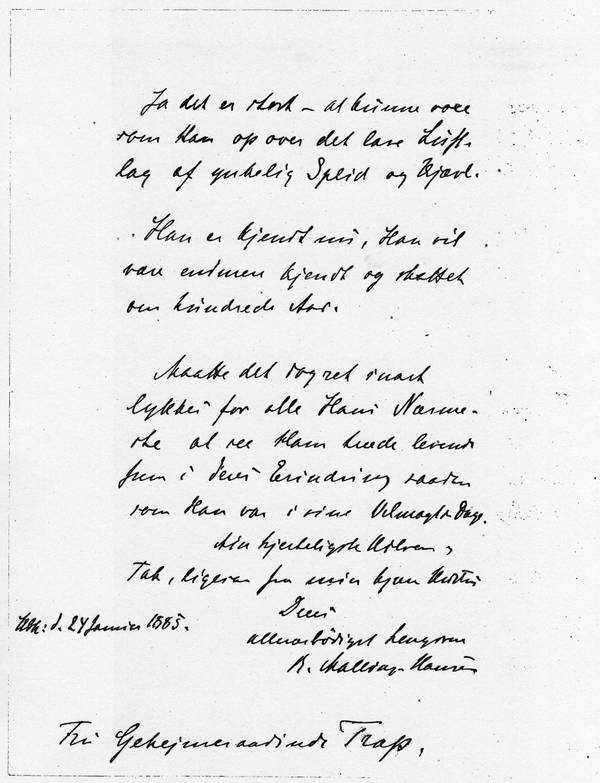 Ja det er stort – at kunne rage
som Han op over det lave Luft-
lag af ynkelig Splid og Kjævl.
Han er kjendt nu, Han vil
være endmere kjendt og skattet
om hundrede Aar.
Maatte det dog ret snart
lykkes for alle Hans Nærme-
ste at see Ham træde levende
frem i deres Erindring saadan
som Han var i sine Velmagts Dage.
Min hjerteligste Hilsen,
Tak, ligesaa fra min kjære Hustru
Deres
allerærbødigst hengivne
R. Malling-Hansen
Kbh: d. 24 Januar 1885.
Fru Gehejmeraadinde Trap.